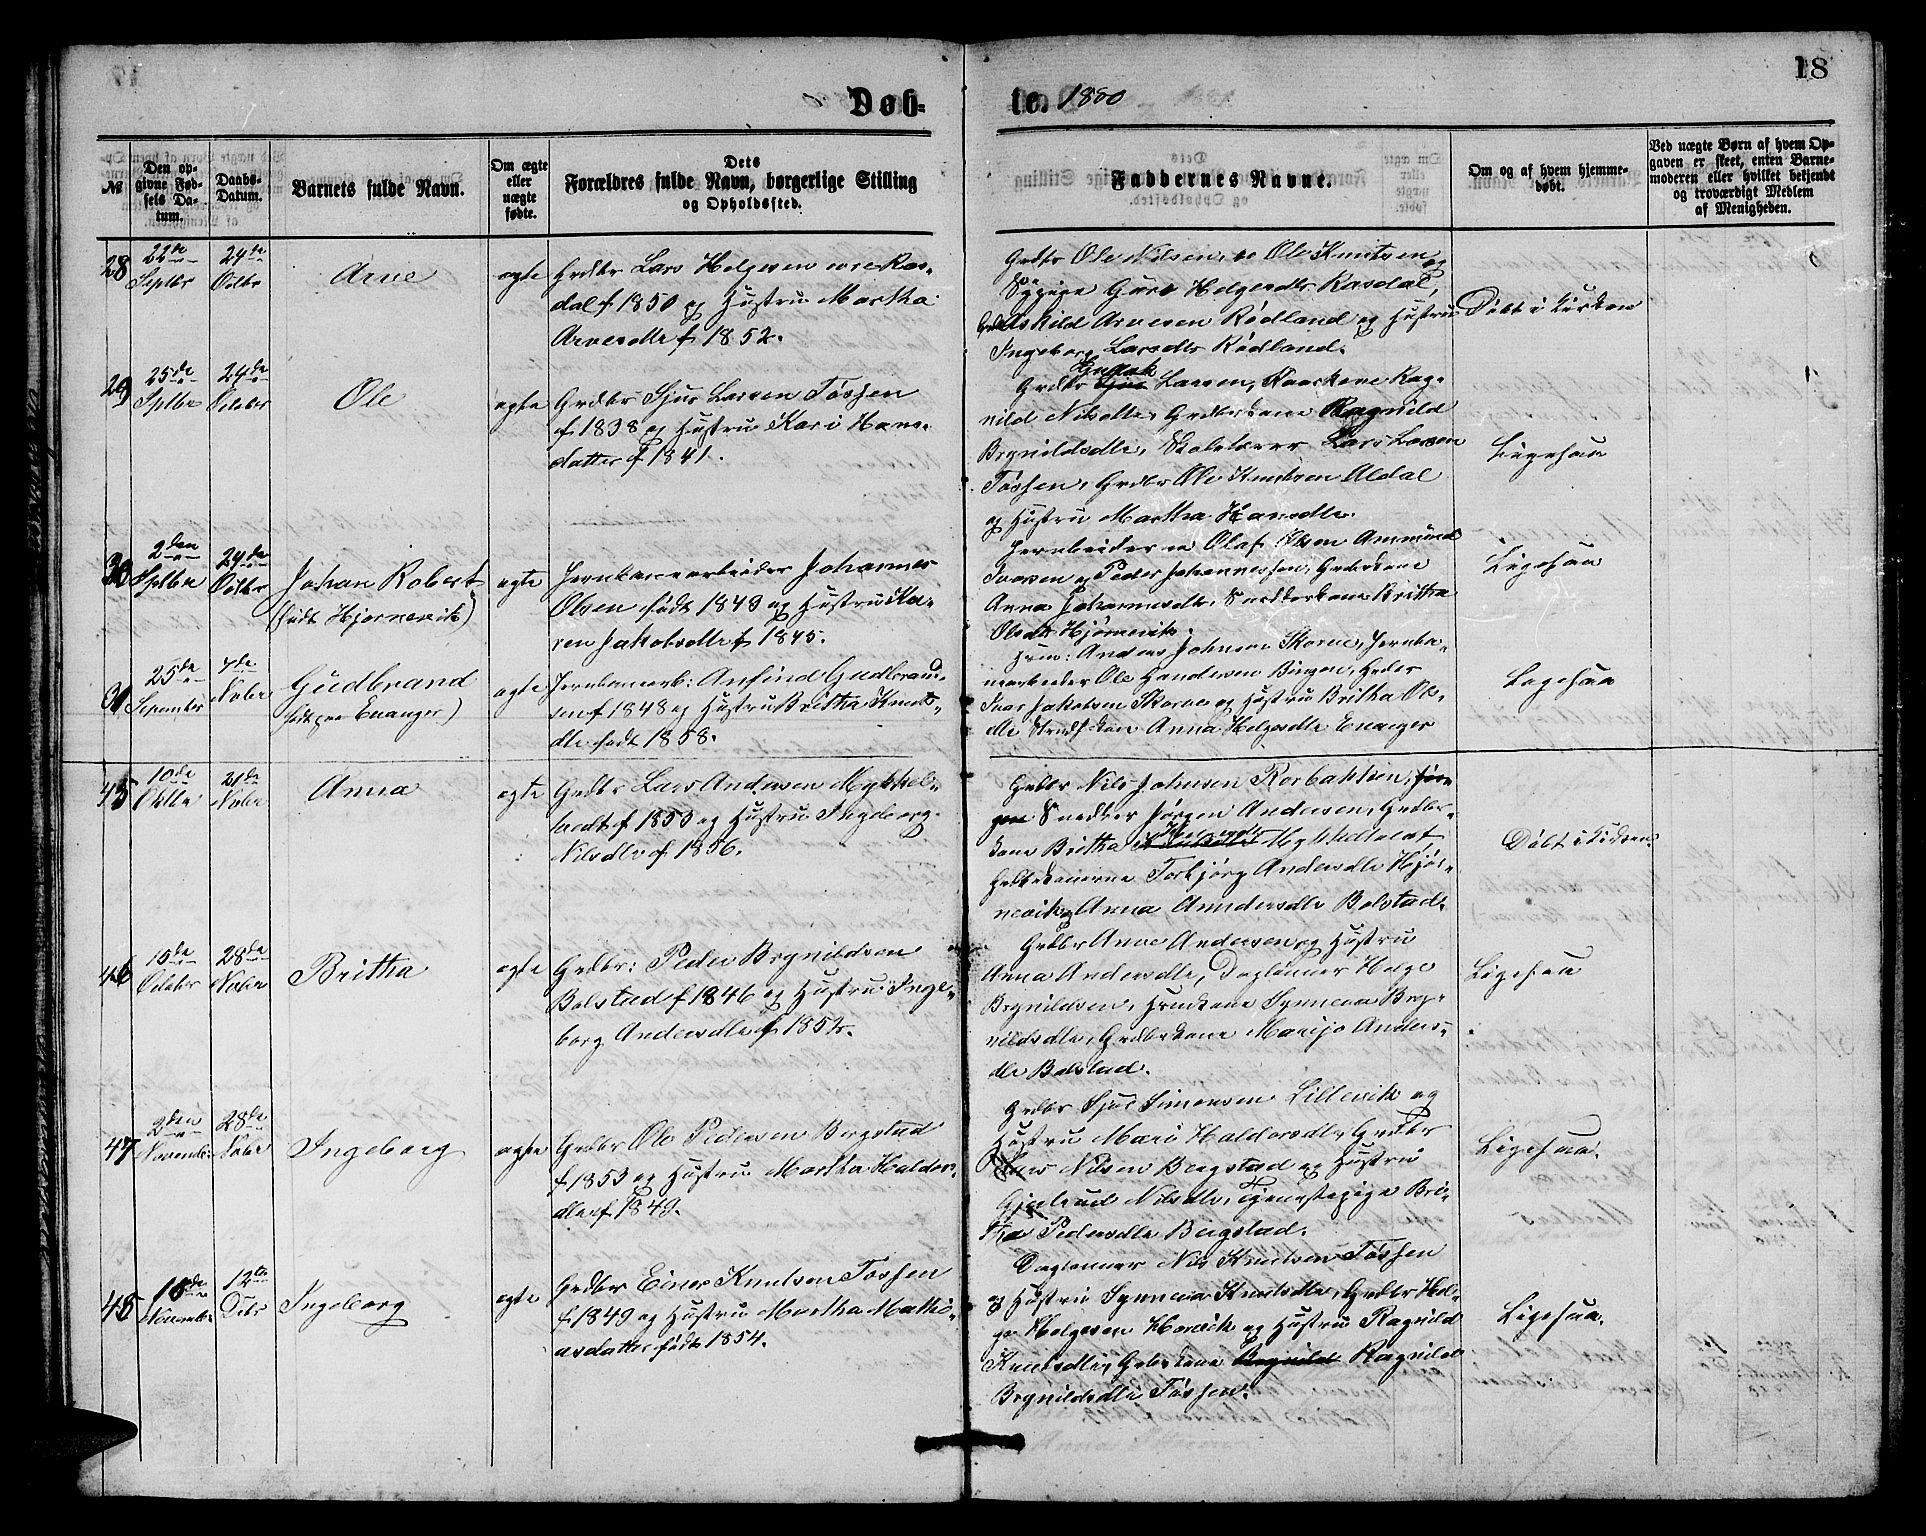 18
Døb-
te. 1880
№
Den op-
givne Fød-
sels Da-
tum.
Daabs-
Datum.
Barnets fulde Navn.
Om ægte
eller
uægte
fødte.
Dets
Forældres fulde Navn, borgerlige Stilling
og Opholdssted.
Faddernes Navne.
Om og af hvem hjemme-
døbt.
Ved uægte Børn af hvem Op-
gaven er skeet, enten Barne-
moderen eller hvilket bekjendt
og troværdigt Medlem
af Menigheden.
28
22de
Septbr
24de
Octbr
Arve
ægte
Grdbr Lars Helgesen Ras-
dal f 1850 og Hustru Martha
Arvesdtr f 1852.
Grdbr Ole Nilsen, Ole Knutsen og
Pige Guro Helgesdtr Rasdal,
Askild Arvesen Rødland og Hustru
Ingeborg Larsdtr Rødland.
Døbt i Kirken
29
25de
Septbr
24de
Octobr
Ole
ægte
Grdbr Sjur Larsen Tøssen
f 1838 og Hustru Kari Hans-
datter f 1841.
Grdbr Larsen, Rag-
nild Nilsdtr, Grdbrkone Ragnild
Brynildsdtr, Skolelærer Lars Larsen
Tøssen, Grdbr Ole Knutsen Aldal
og Hustru Martha Hansdtr.
Ligesaa
30
2den
Septbr
24de
Octbr
Johan Robert
(født Hjørnevik)
ægte
Jernbanearbeider Johannes
Olsen født 1843 og Hustru Ka-
ren Jakobsdtr f 1845.
Olaf Olsen Ammund
Ivarsen og Peder Johannessen, Grdbrkone
Anna Johannesdtr, Snedkerkone Britha
Olsdtr Hjørnevik.
Ligesaa
31
25de
September
7de
Novbr
Gudbrand
(født paa Evanger)
ægte
Jernbanearb: Anfind Gudbrand-
sen f 1848 og Hustru Britha Knuts-
dtr født 1858.
Anders Johnsen Skorve, Jernba-
nearbeider Ole Gundersen Bergen, Grdbr
Ivar Jakobsen Skorve og Hustru Britha Ols-
dtr Anna Helgesdtr Evanger
Ligesaa
45
10de
Octbr
21de
Novbr
Anna
ægte
Grdbr Lars Andersen Mykkel-
tvedt f 1853 og Hustru Ingeborg
Nilsdtr f 1856.
Grdbr Nils Johnsen Rorbakken,
Snedker Jørgen Andersen, Grdbr-
kone Britha Mykkeltvedt,
Grdbrkonerne Torbjørg Andersdtr Hjør-
nevik og Anna Andersdtr Bolstad.
Døbt i Kirken
46
10de
Octobr
28de
Novbr
Britha
ægte
Grdbr: Peder Brynildsen
Bolstad f 1846 og Hustru Inge-
borg Andersdtr f 1852.
Grdbr Arne Andersen og Hustru
Anna Andersdtr, Daglønner Helge
Brynildsen, Synneva Bryn-
nildsdtr, Grdbrkone Marijo Anders-
dtr Bolstad.
Ligesaa
47
2den
Novembr
28de
Novbr
Ingeborg
ægte
Grdbr Ole Pedersen Bergstad
f 1853 og Hustru Martha Haldors-
dtr f 1849.
Grdbr Sjur Simonsen Lillevik og
Hustru Mari Haldorsdtr, Grdbr
Lars Nilsen Bergstad og Hustru
Gjertrud Nilsdtr, Tjenestepige Bri-
tha Pedersdtr Bergstad.
Ligesaa.
48
16de
Novembr
12te
Decbr
Ingeborg
ægte
Grdbr Einar Knutsen Tøssen
f 1849 og Hustru Martha Mathi-
asdatter født 1854.
Daglønner Nils Knutsen Tøssen
og Hustru Synneva Knutsdtr, Grdbr Hel-
ge Helgesen Horvik og Hustru Ragnild
Knutsdtr, Grdbrkone Ragnild
Brynildsdtr Tøssen.
Ligesaa.